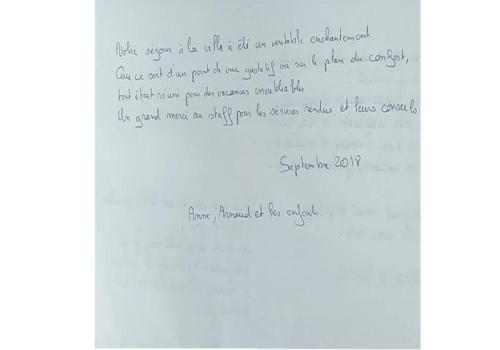 Notre séjour à la villa à été un veritable enchantement
Que ce soit d'un point de vue gustatif ou sur le plan du confort,
tout était réuni pour des vacances inoubliables
Un grand merci au staff pour les services rendus et leurs conseils
Septembre 2018
Anne, Arnaud et les enfants.